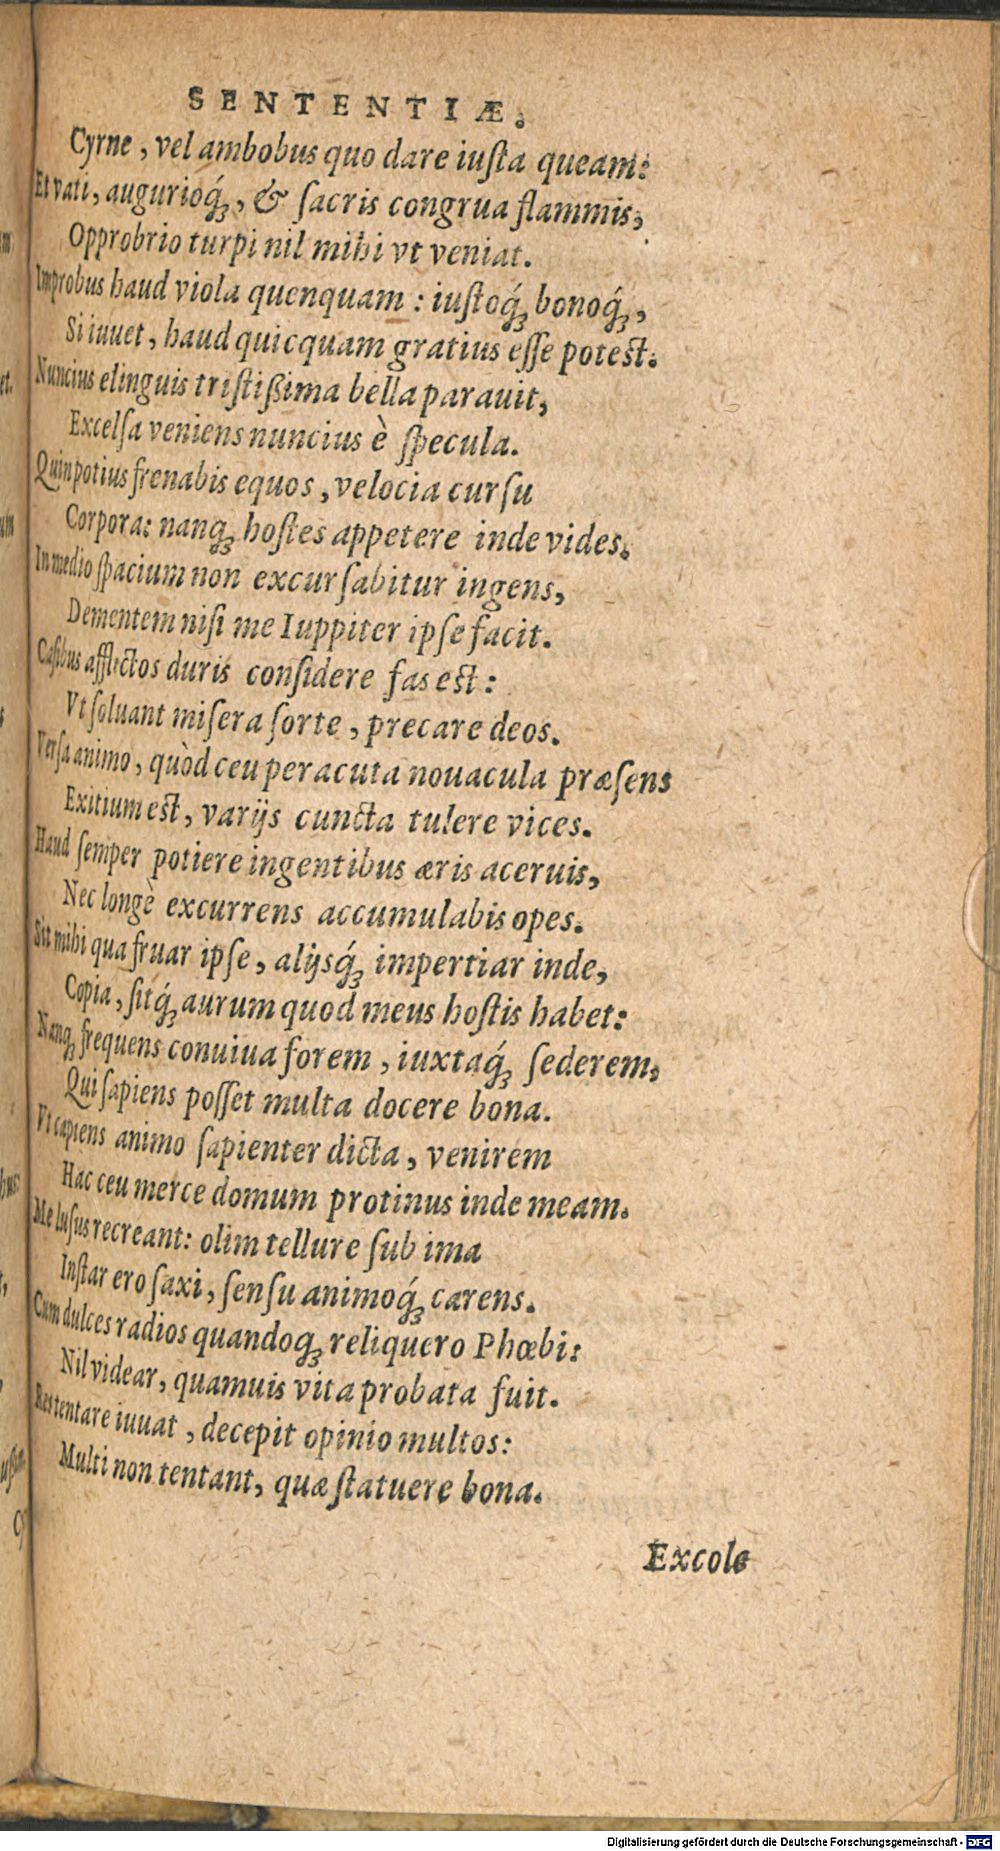 SENTENTIÆ.
Cyrne, vel ambobus quo dare iusta queam:
Et vati, augurioq́ꝫ, & sacris congrua flammis,
Opprobrio turpi nil mihi vt veniat.
Improbus haud viola quenquam: iustoq́ꝫ bonoq́ꝫ,
Si iuuet, haud quicquam gratius esse potest.
Nuncius elinguis tristißima bella parauit,
Excelsa veniens nuncius è specula.
Quin potius frenabis equos, velocia cursu
Corpora: nanqꝫ hostes appetere inde vides.
In medio spacium non excursabitur ingens,
Dementem nisi me Iuppiter ipse facit.
Casibus afflictos duris considere fas est:
Vt soluant misera sorte, precare deos.
Versa animo, quòd ceu peracuta nouacula præsens
Exitium est, varijs cuncta tulere vices.
Haud semper potiere ingentibus æris aceruis,
Nec longè excurrens accumulabis opes.
Sit mihi qua fruar ipse, alijsq́ꝫ impertiar inde,
Copia, sitq́ꝫ aurum quod meus hostis habet:
Nanqꝫ frequens conuiua forem, iuxtaq́ꝫ sederem,
Qui sapiens posset multa docere bona.
Vt capiens animo sapienter dicta, venirem
Hac ceu merce domum protinus inde meam.
Me lusus recreant: olim tellure sub ima
Instar ero saxi, sensu animoq́ꝫ carens.
Cum dulces radios quandoqꝫ reliquero Phœbi:
Nil videar, quamuis vita probata fuit.
Res tentare iuuat, decepit opinio multos:
Multi non tentant, quæ statuere bona.
Excole
Digitalisierung gefördert durch die Deutsche Forschungsgemeinschaft - DFG